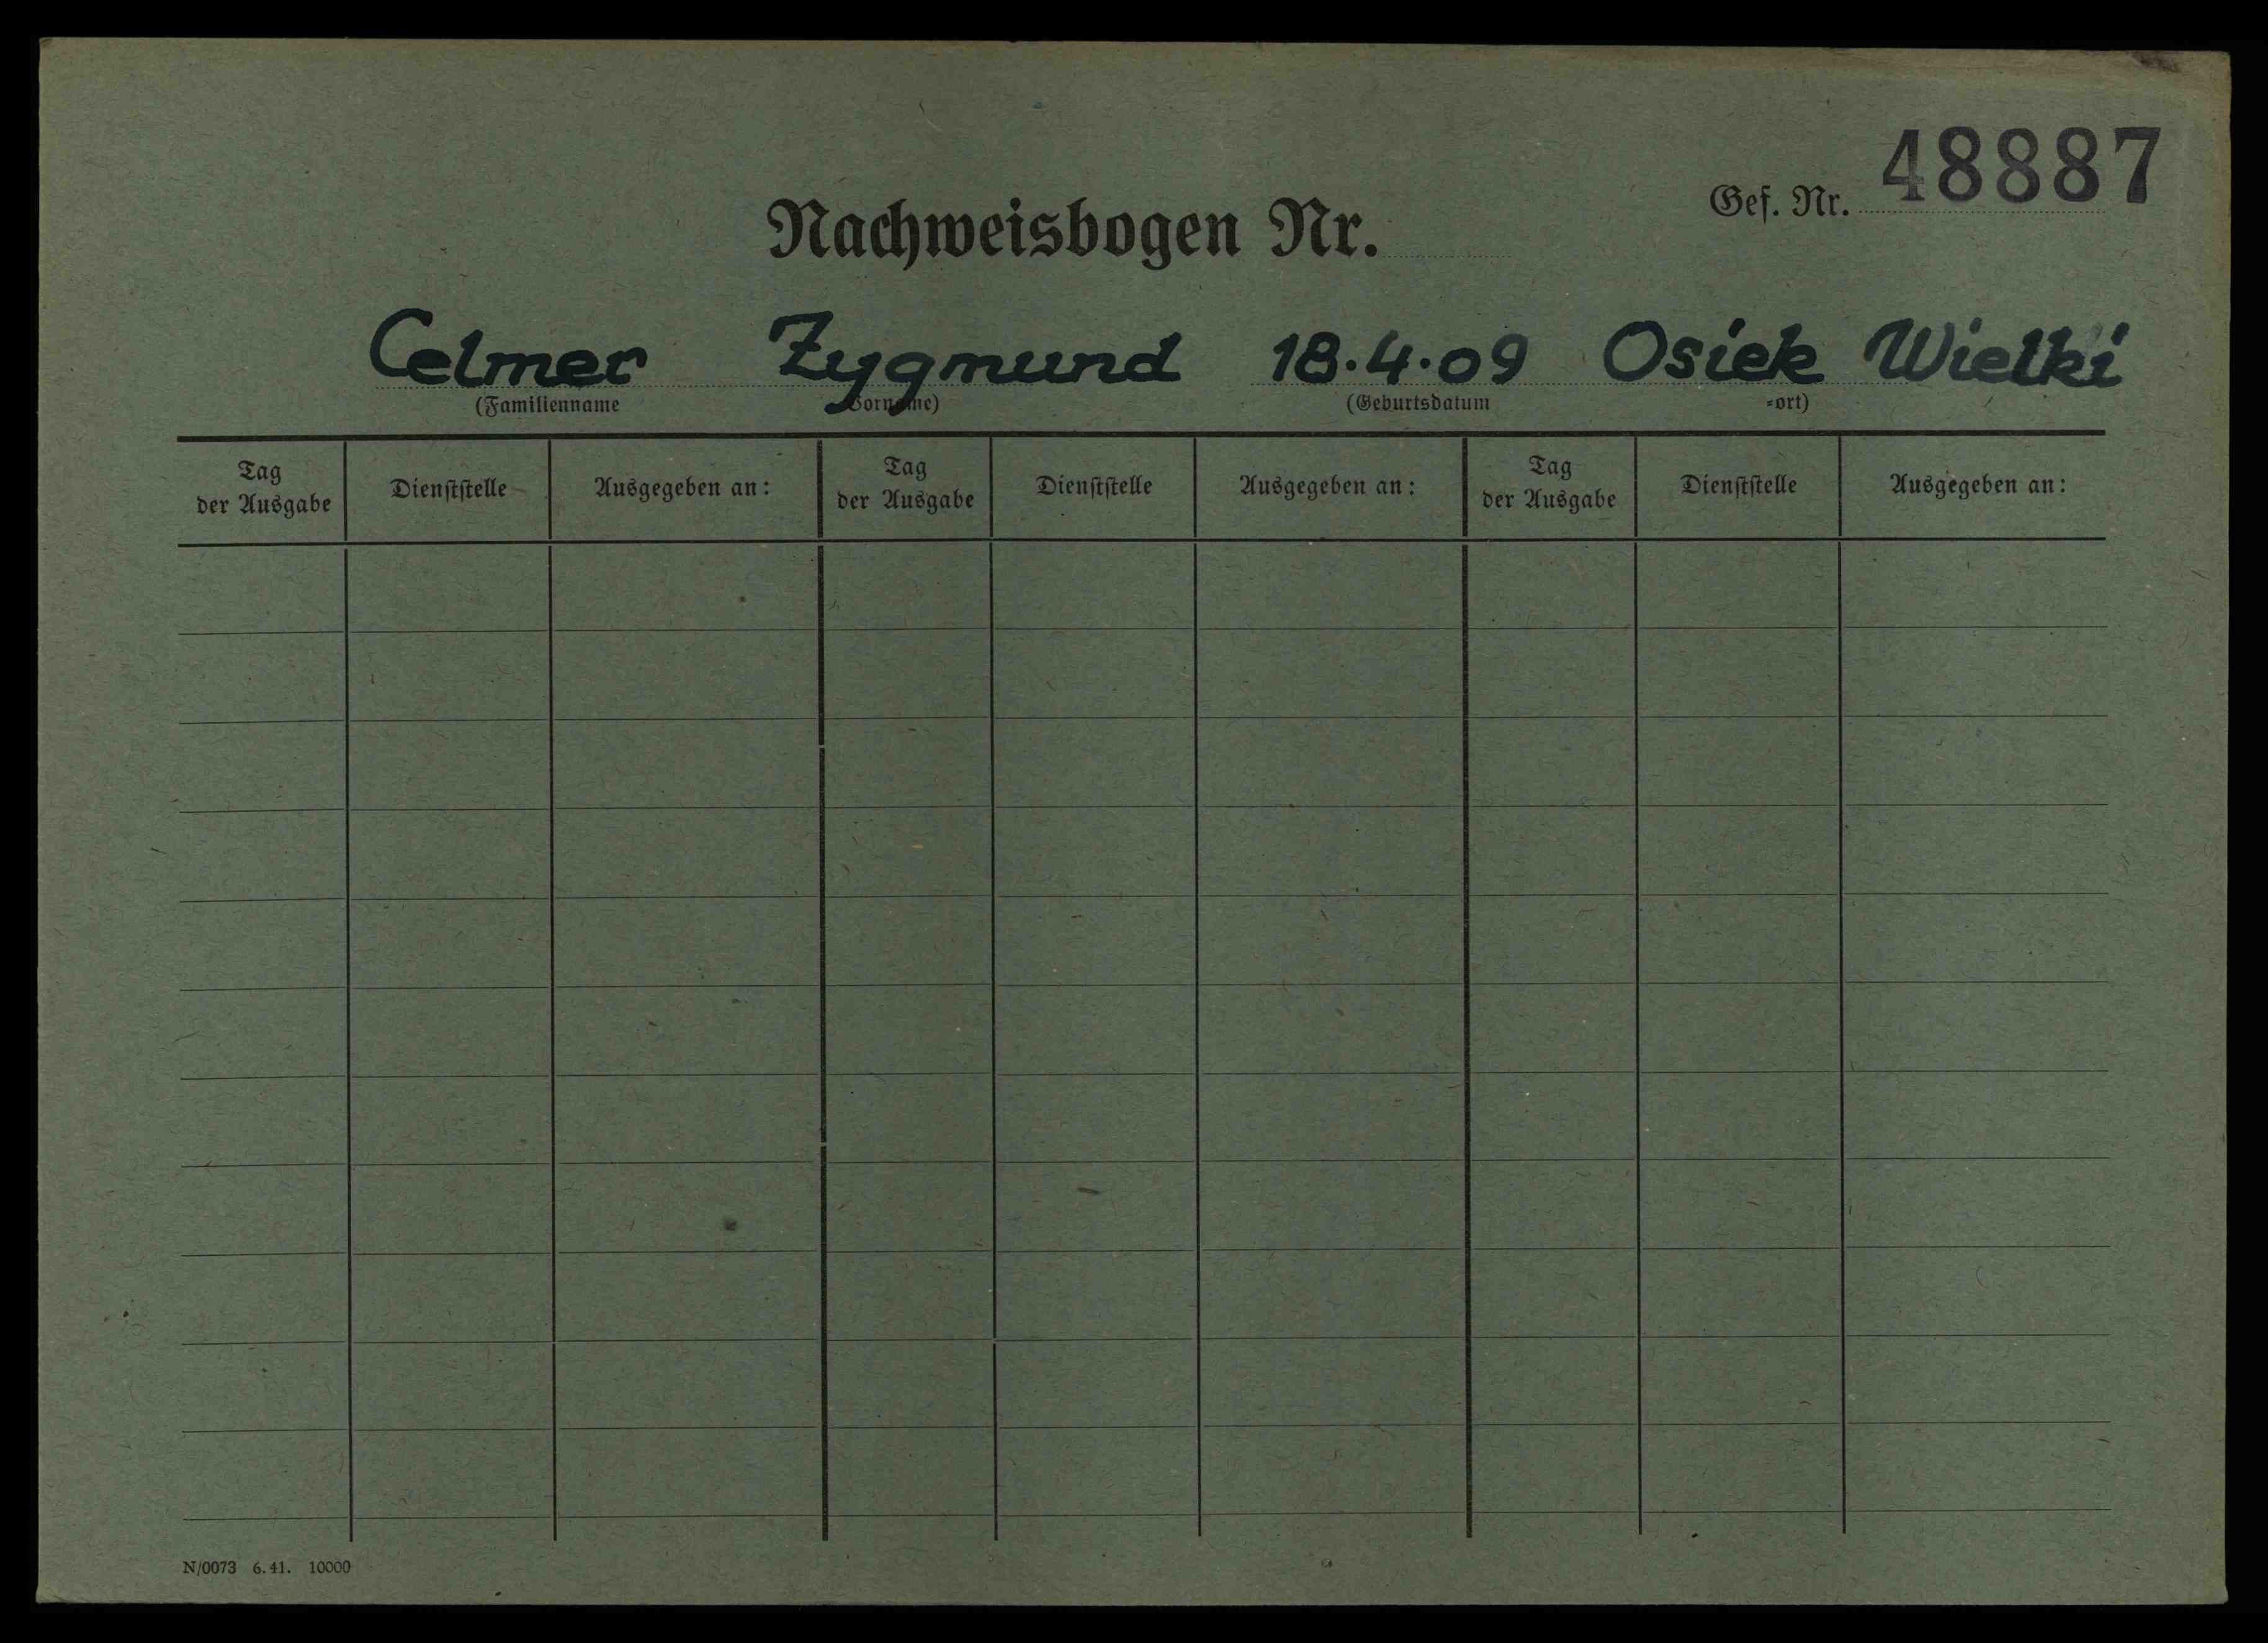 48887
Gef. Nr.
Nachweisbogen Nr.
Celmer Zygmund 18.4.09 Osiek Wielki
(Familienname Vorname) (Geburtsdatum =ort)
Tag der Ausgabe Dienststelle Ausgegeben an: Tag der Ausgabe Dienststelle Ausgegeben an: Tag der Ausgabe Dienststelle Ausgegeben an:
N/0073 6.41. 10000